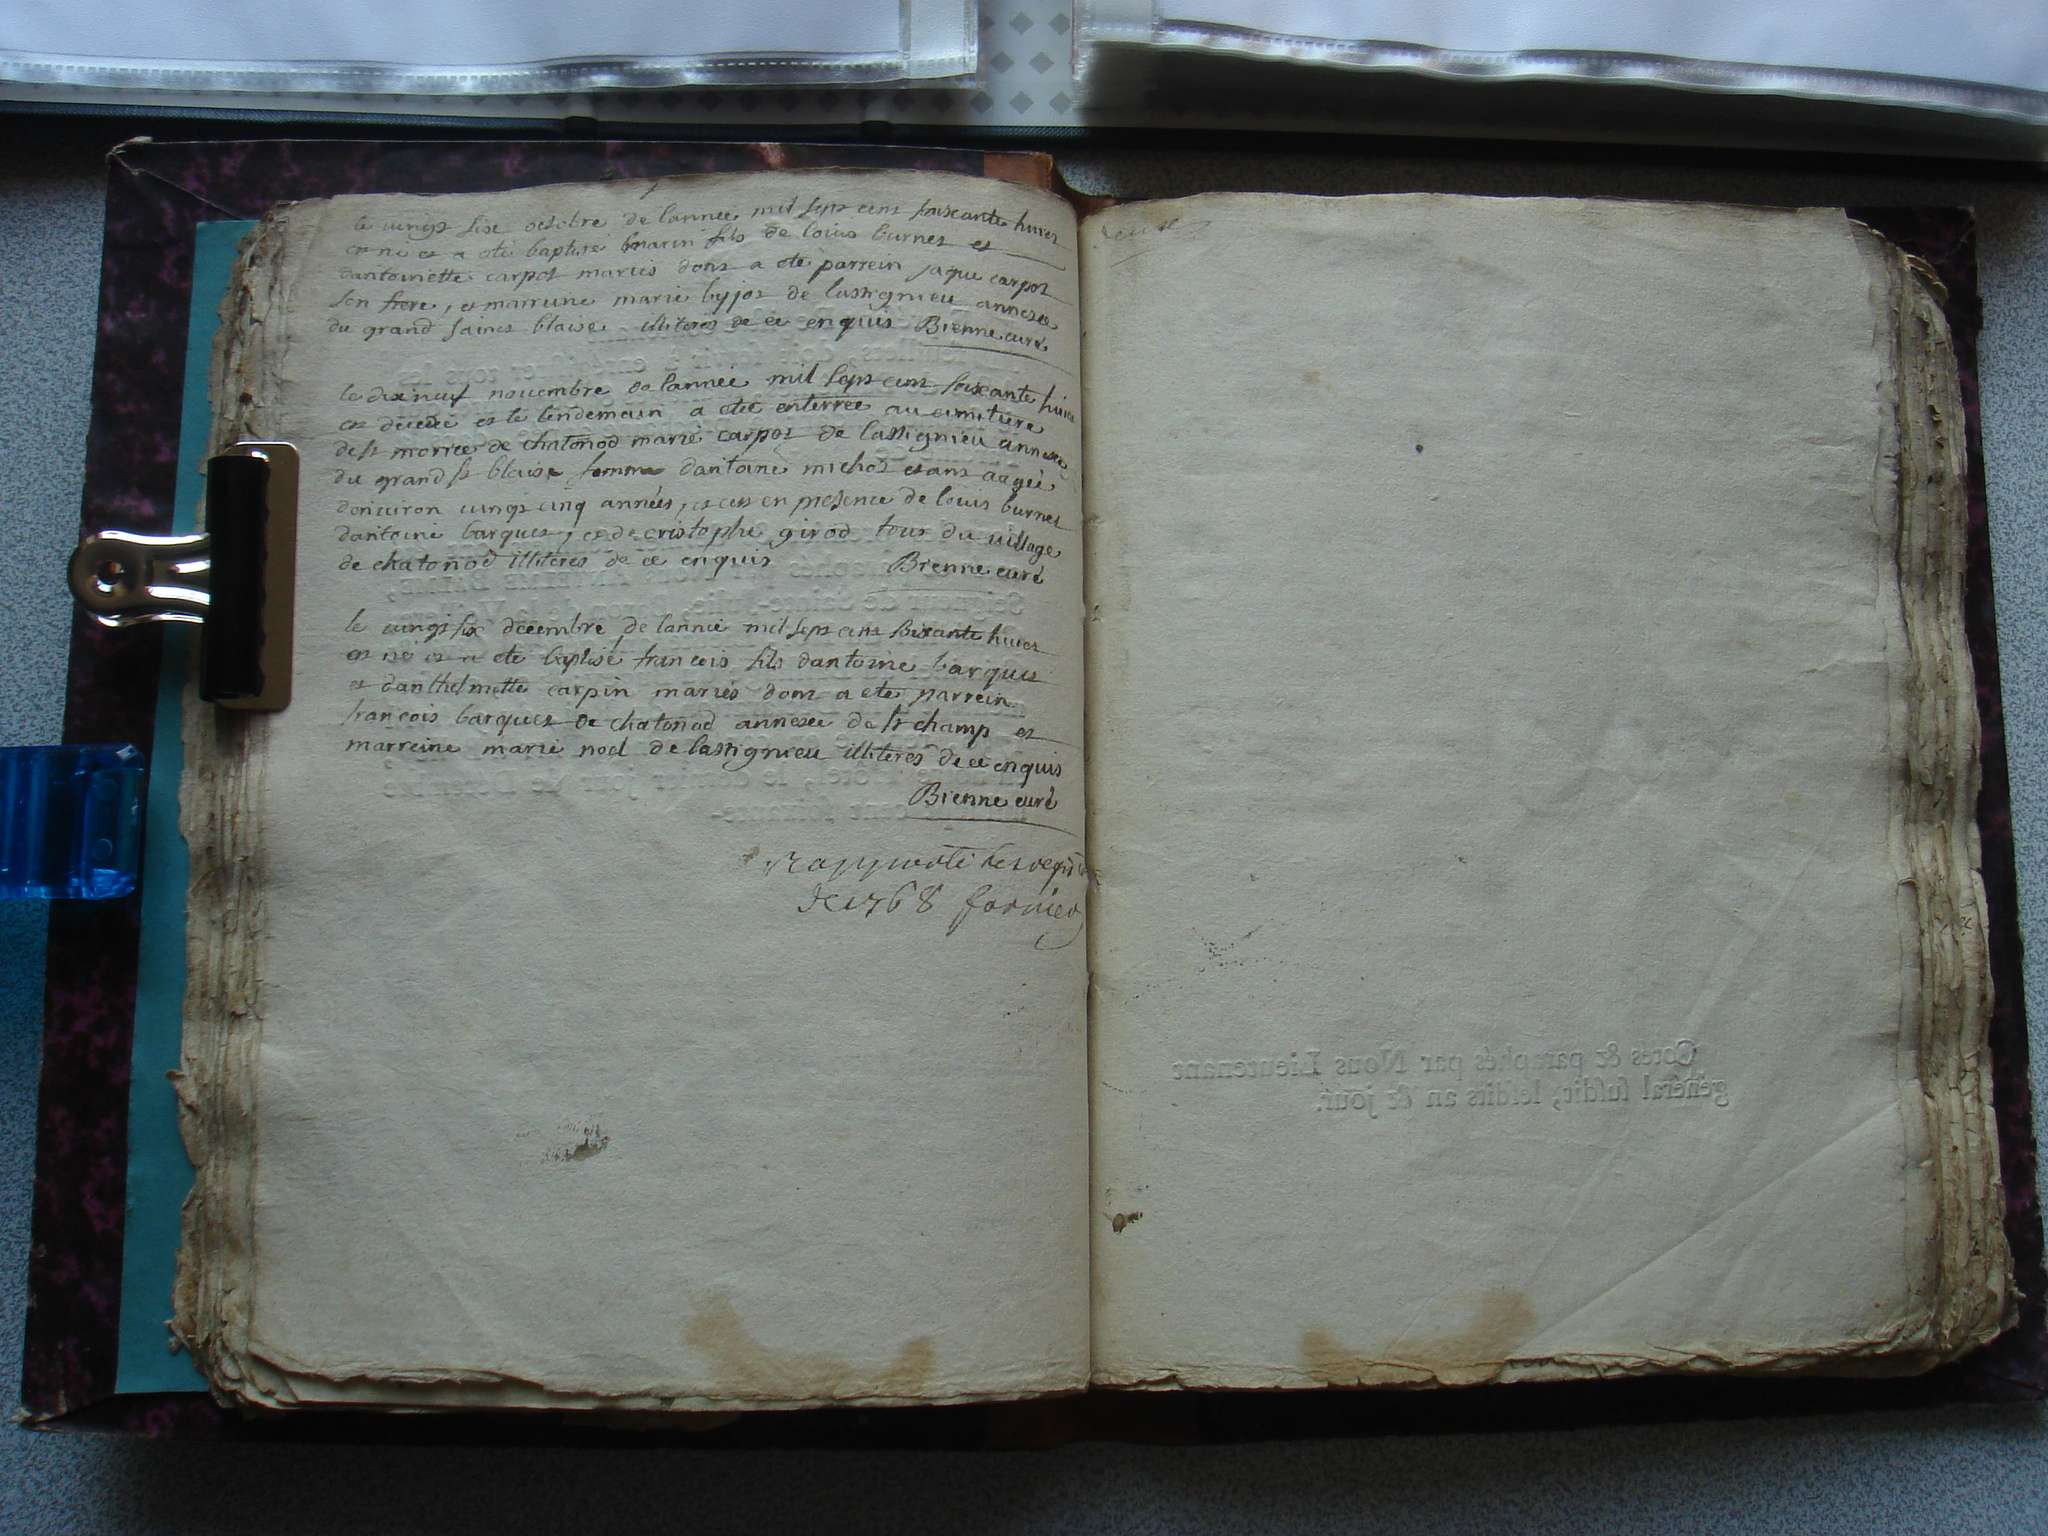 le vingt six octobre de lannee mil sept cens soixante huict
est ne et a ete baptise marin fils de louis burnet et
dantoinette carpot mariés dont a ete parrein jaque carpot
son frere, et marreine marie byjot de lassignieu annexe
du grand sainct blaise illiteres de ce enquis Brenne curé
le dix neuf novembre de lannée mil sept cens soixante huict
est decede et le lendemain a ete enterree au cimitiere
de st de chatonod marie carpot de lassignieu annexe
du grand st blaise femme dantoine michot estant aagée
denviron vingt cinq années, et ce en presence de louis burnet
dantoine barquet, et de cristophe girod tous du village
de chatonod illiteres de ce enquis Brenne curé
le vingt six decembre de lannee mil sept cens soixante huict
est né et a ete baptisé francois fils dantoine barquet
et danthelmette carpin mariés dont a ete parrein
francois barquet de chatonod annexe de st champ et
marreine marie noel de lassignieu illiteres de ce enquis
Brenne curé
Rapporté le
de 1768
Cotés & paraphés par Nous Lieutenant
général susdit, lesdits an & jour.